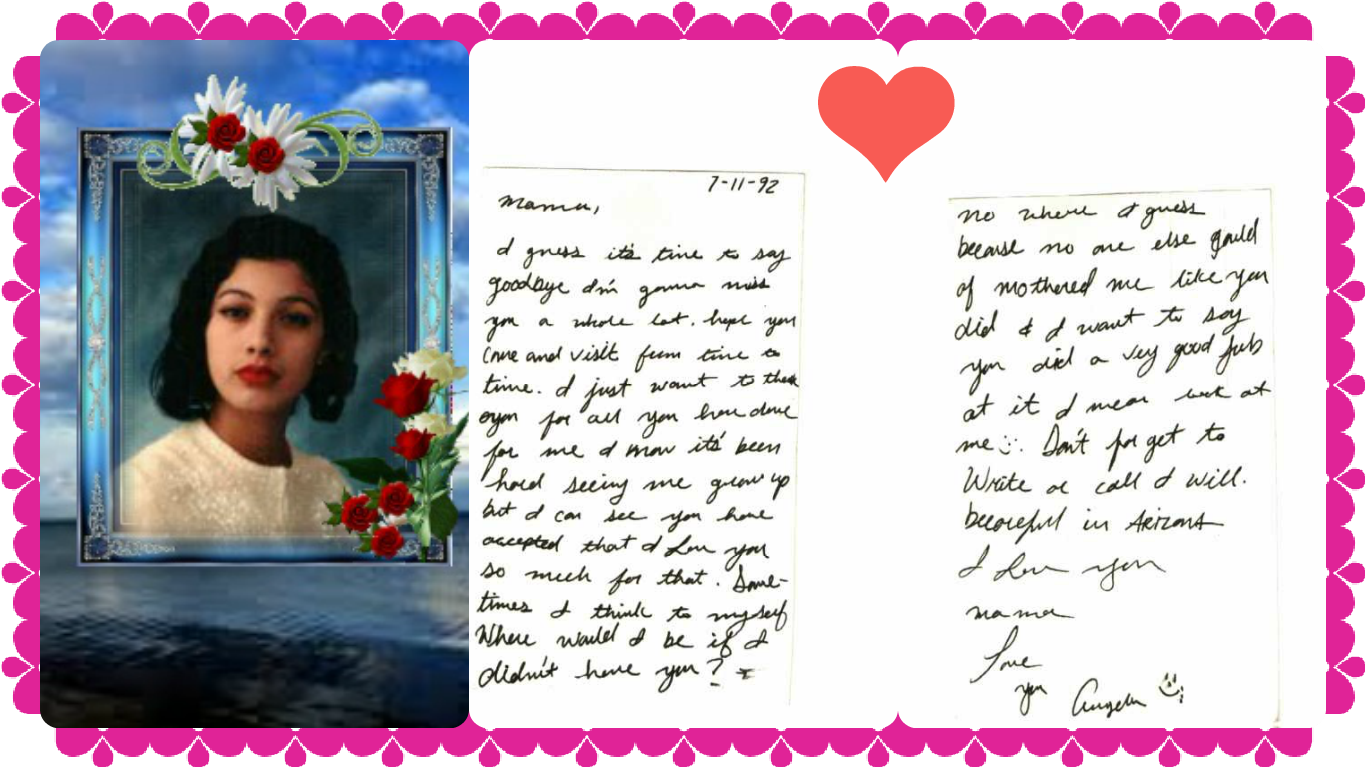 7-11-92
mama,
I guess it's time to say
goodbye I'm gonna miss
you a whole lot. hope you
come and visit from time to
time. I just want to thank
you for all you have done
for me I know it's been
hard seeing me grow up
but I can see you have
accepted that I Love you
so much for that. Some-
times I think to myself
Where would I be if I
didn't have you?
no where I guess
because no one else could
of mothered me like you
did & I want to say
you did a very good job
at it I mean look at
me. Don't forget to
Write or call I will.
becareful in Arizona
I Love you
mama
Love
you
Angela